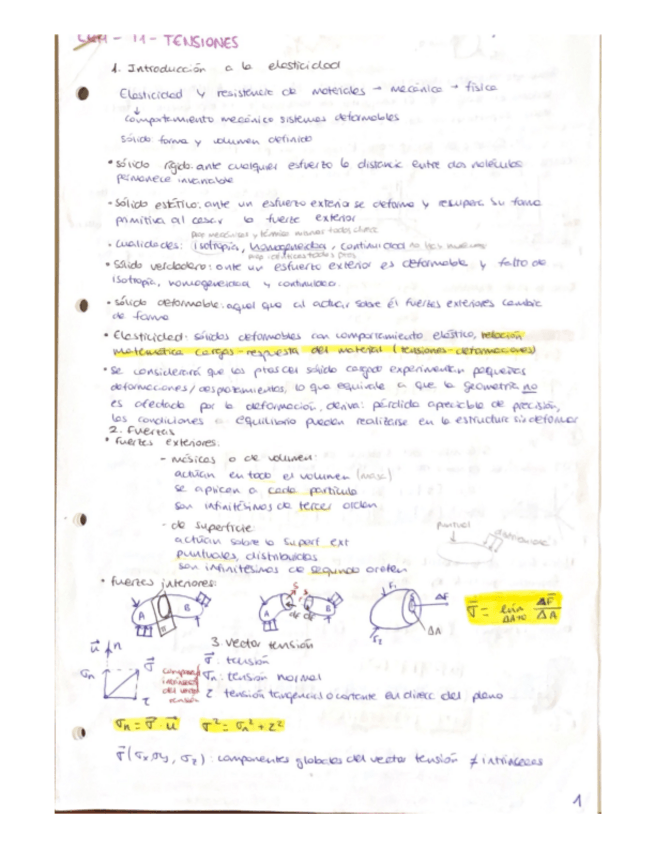 - TENSIONES
1. Introducción a la elasticidad
Elasticidad y resistencia de materiales → mecánica → física
↓
comportamiento mecánico sistemas deformables
Sólido forma y volumen definido
• Sólido rígido: ante cualquier esfuerzo la distancia entre dos moléculas
permanece invariable
- Sólido elástico: ante un esfuerzo exterior se deforma y recupera su forma
primitiva al cesar la fuerza exterior
- Cualidades: isotropía, homogeneidad, continuidad no hay
• Sólido verdadero: ante un esfuerzo exterior es deformable y falto de
isotropía, homogeneidad y continuidad.
• Sólido deformable: aquel que al actuar sobre él fuerzas exteriores cambia
de forma
• Elasticidad: sólidos deformables con comportamiento elástico, relación
matemática cargas-respuesta del material (tensiones-deformaciones)
• Se considerará que los ptos del sólido cargado experimentan pequeñas
deformaciones/desplazamientos, lo que equivale a que la geometría no
es afectada por la deformación, deriva: pérdida apreciable de precisión,
las condiciones equilibrio pueden realizarse en la estructura sin deformar
2. Fuerzas
• Fuerzas exteriores:
- másicas o de volumen:
actúan en todo el volumen (masa)
se aplican a cada partícula
son infinitésimos de tercer orden
- de superficie:
actúan sobre la superf ext
puntuales, distribuidas
son infinitésimos de segundo orden
puntual
distribuidas
• Fuerzas interiores:
A B
A B
dF dF
F1
F2
ΔF
ΔA
σ⃗ = lim ΔF⃗/ΔA
ΔA→0
3. Vector tensión
u⃗ n
σn σ⃗
τ
componentes
intrínsecas
del vector
tensión
σ⃗: tensión
σn: tensión normal
τ tensión tangencial o cortante en direcc del plano
σn = σ⃗ · u⃗ σ² = σn² + τ²
σ⃗ (σx, σy, σz): componentes globales del vector tensión ≠ intrínsecas
1